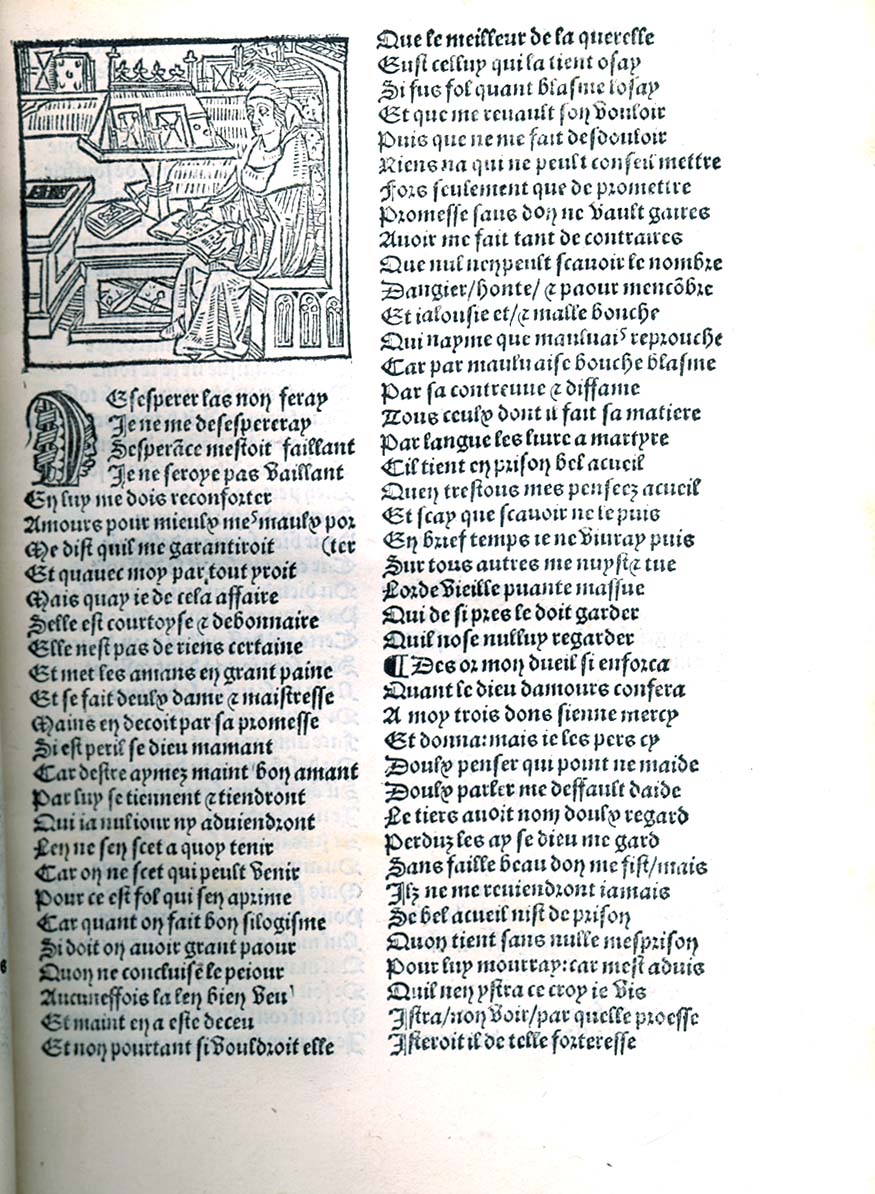 Desesperer las non feray
Je ne me desespereray
Desperāce mestoit faillant
Je ne seroye pas vaillant
En luy me dois reconforter
Amours pour mieulx mes maulx por
Me dist quil me garantiroit (ter
Et quauec moy par tout yroit
Mais quay ie de cela affaire
Selle est courtoyse ⁊ debonnaire
Elle nest pas de riens certaine
Et met les amans en grant paine
Et se fait deulx dame ⁊ maistresse
Mains en decoit par sa promesse
Si est peril se dieu mamant
Car destre aymez maint bon amant
Par luy se tiennent ⁊ tiendront
Qui ia nul iour ny aduiendront
Len ne sen scet a quoy tenir
Car on ne scet qui peult venir
Pour ce est fol qui sen aprime
Car quant on fait bon silogisme
Si doit on auoir grant paour
Quon ne concluise le peiour
Aucuneffois la len bien veu
Et maint en a este deceu
Et non pourtant si vouldroit elle
Que le meilleur de la querelle
Eust celluy qui la tient osay
Si fus fol quant blasme losay
Et que me reuault son vouloir
Puis que ne me fait desdouloir
Riens na qui ne peult conseil mettre
Fors seulement que de promettre
Promesse sans don ne vault gaires
Auoir me fait tant de contraires
Que nul nen peult scauoir le nombre
Dangier/honte/⁊ paour mencōbre
Et ialousie et/⁊ malle bouche
Qui nayme que mauluais reprouche
Car par mauluaise bouche blasme
Par sa contreuue ⁊ diffame
Tous ceulx dont il fait sa matiere
Par langue les liure a martyre
Cil tient en prison bel acueil
Quen trestous mes penseez acueil
Et scay que scauoir ne le puis
En brief temps ie ne viuray puis
Sur tous autres me nuyst ⁊ tue
Lorde vieille puante massue
Qui de si pres le doit garder
Quil nose nulluy regarder
¶Des or mon dueil si enforca
Quant le dieu damours confera
A moy trois dons sienne mercy
Et donna:mais ie les pers cy
Doulx penser qui point ne maide
Doulx parler me deffault daide
Le tiers auoit nom doulx regard
Perduz les ay se dieu me gard
Sans faille beau don me fist/mais
Ilz ne me reuiendront iamais
Se bel acueil nist de prison
Quon tient sans nulle mesprison
Pour luy mourray:car mest aduis
Quil nen ystra ce croy ie vis
Istra/non voir/par quelle proesse
Isteroit il de telle forteresse